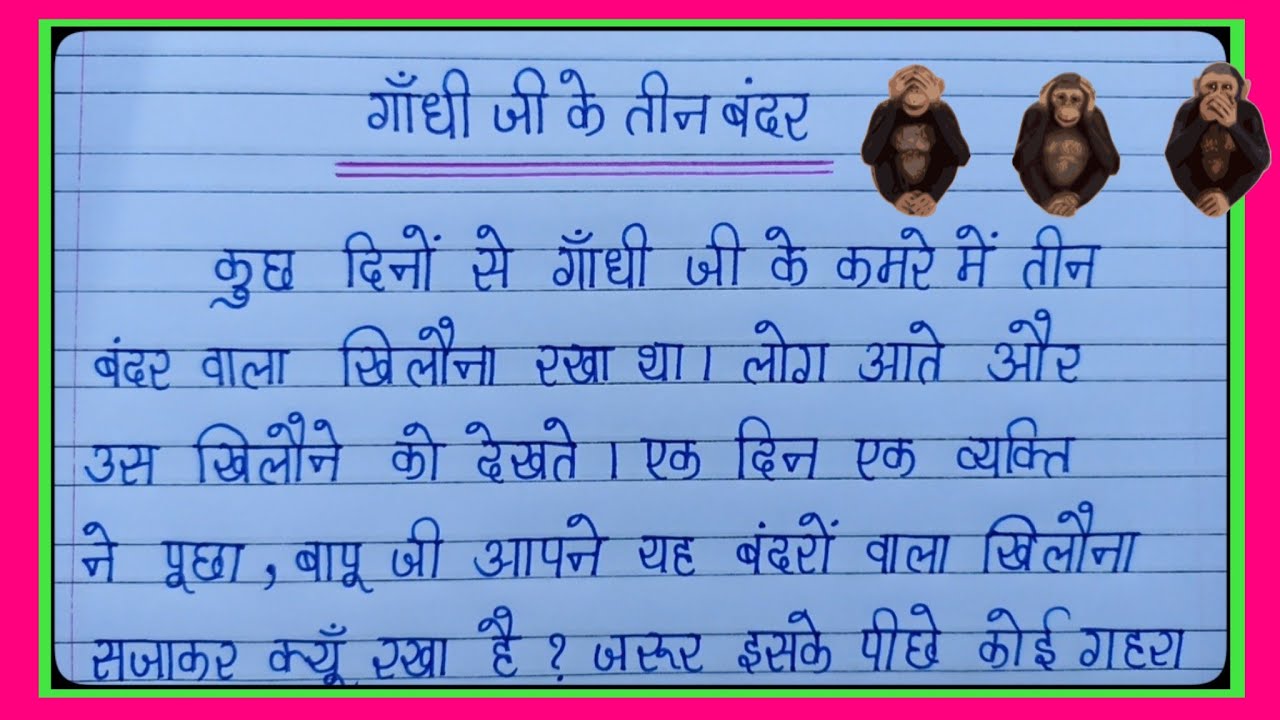 गाँधी जी के तीन बंदर
कुछ दिनों से गाँधी जी के कमरे में तीन
बंदर वाला खिलौना रखा था। लोग आते और
उस खिलौने को देखते । एक दिन एक व्यक्ति
ने पूछा , बापू जी आपने यह बंदरों वाला खिलौना
सजाकर क्यूँ रखा है ? जरूर इसके पीछे कोई गहरा